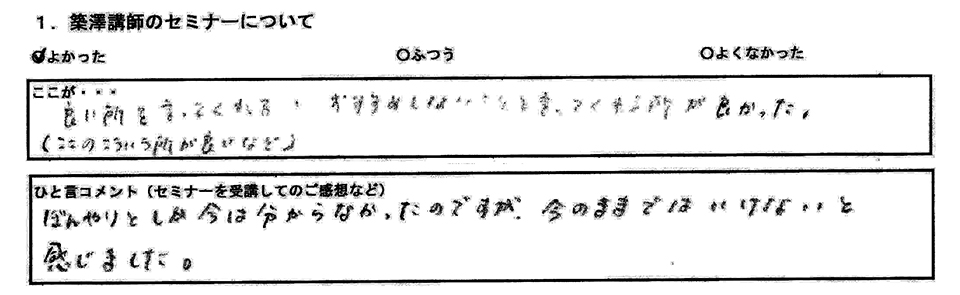 1. 築澤講師のセミナーについて
よかった ○ふつう ○よくなかった
ここが・・・
良い所を言ってくれる、おすすめしないことを言ってくれる所が良かった。
(ここのこういう所が良いなど)
ひと言コメント(セミナーを受講してのご感想など)
ぼんやりとしか今は分からなかったのですが、今のままではいけないと
感じました。